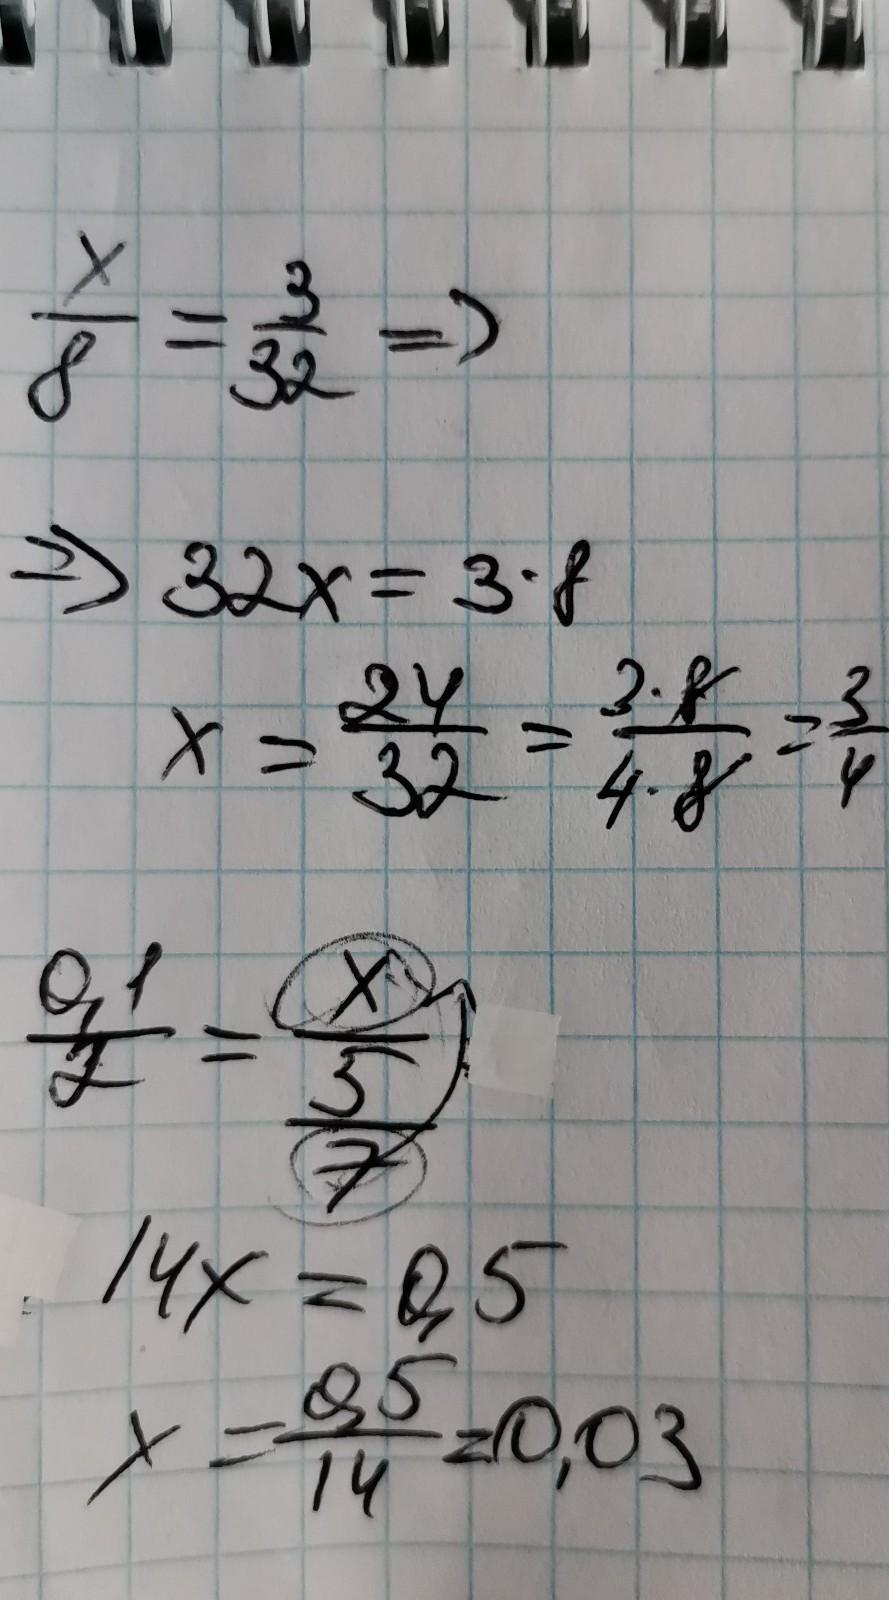 x/8 = 3/32 =>
=> 32x = 3·8
x = 24/32 = 3·8/4·8 = 3/4
0,1/2 = x/5/7
14x = 0,5
x = 0,5/14 = 0,03